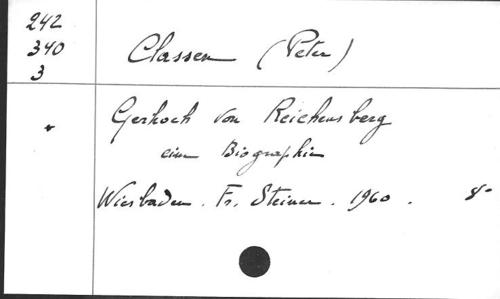 242
340
3
Classen (Peter)
Gerhoch von Reichersberg
eine Biographie
Wiesbaden. Fr. Steiner. 1960. 8°